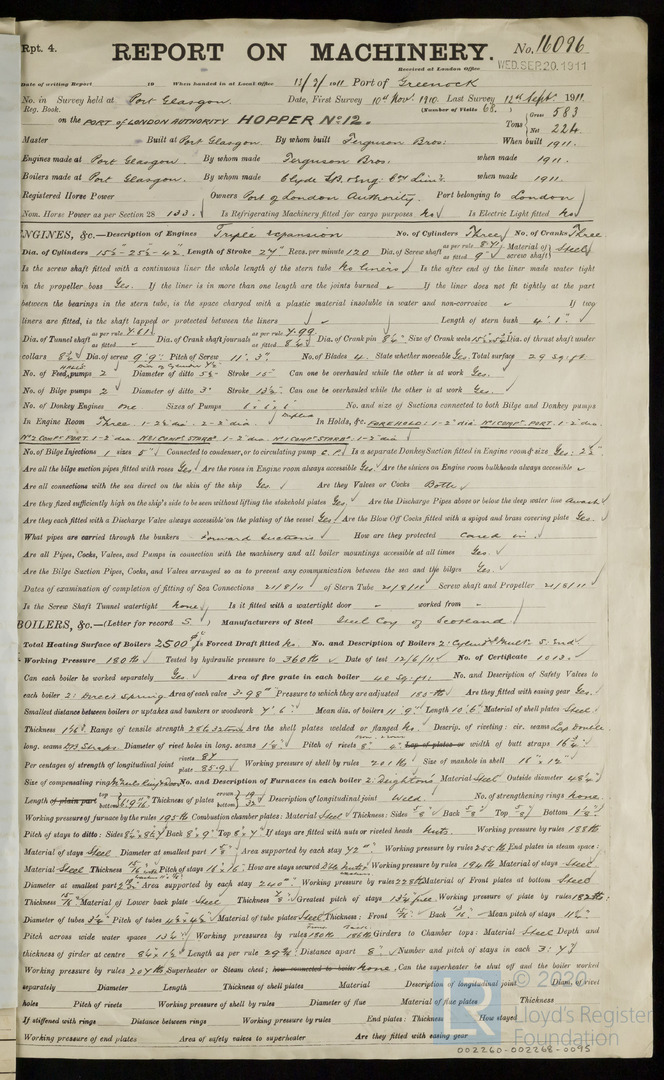 Rpt. 4.
REPORT ON MACHINERY. No. 16096
Received at London Office WED. SEP. 20. 1911
Date of writing Report 19 When handed in at Local Office 13/9/1911 Port of Greenock
No. in Survey held at Port Glasgow. Date, First Survey 10th Novr 1910. Last Survey 12th Septr 1911
Reg. Book. (Number of Visits 68.
on the PORT of LONDON AUTHORITY HOPPER No. 12. Tons Gross 583 Net 224
Master Built at Port Glasgow By whom built Ferguson Bros. When built 1911.
Engines made at Port Glasgow. By whom made Ferguson Bros. when made 1911.
Boilers made at Port Glasgow. By whom made Clyde S.B. & Eng. Coy Limd. when made 1911.
Registered Horse Power Owners Port of London Authority. Port belonging to London
Nom. Horse Power as per Section 28 133. Is Refrigerating Machinery fitted for cargo purposes No Is Electric Light fitted No
ENGINES, &c.—Description of Engines Triple expansion No. of Cylinders Three No. of Cranks Three
Dia. of Cylinders 15½-25½-42" Length of Stroke 27" Revs. per minute 120 Dia. of Screw shaft as per rule as fitted 9" Material of screw shaft Steel
Is the screw shaft fitted with a continuous liner the whole length of the stern tube No liners Is the after end of the liner made water tight
in the propeller boss Yes. If the liner is in more than one length are the joints burned If the liner does not fit tightly at the part
between the bearings in the stern tube, is the space charged with a plastic material insoluble in water and non-corrosive If two
liners are fitted, is the shaft lapped or protected between the liners Length of stern bush 4' 1"
Dia. of Tunnel shaft as per rule 7.61 as fitted Dia. of Crank shaft journals as per rule 7.99 as fitted Dia. of Crank pin 8¼" Size of Crank webs Dia. of thrust shaft under
collars 8¼" Dia. of screw 9' 9" Pitch of Screw 11' 3" No. of Blades 4. State whether moveable Yes. Total surface 29 sq. ft.
No. of Feed pumps 2 Diameter of ditto Stroke 15" Can one be overhauled while the other is at work Yes.
No. of Bilge pumps 2 Diameter of ditto 3" Stroke 13½" Can one be overhauled while the other is at work Yes.
No. of Donkey Engines one Sizes of Pumps 6" 6" 6" Duplex No. and size of Suctions connected to both Bilge and Donkey pumps
In Engine Room Three. 1-2½ dia. 2-2" dia. In Holds, &c. FORE HOLD: 1-2" dia. No 1 COMPt. PORT. 1-2" dia.
No 2 COMPt PORT. 1-2" dia. 1-2" dia. No 1 COMPt STARBD. 1-2" dia
No. of Bilge Injections 1 sizes 5" Connected to condenser, or to circulating pump C.P. Is a separate Donkey Suction fitted in Engine room & size Yes: 2½"
Are all the bilge suction pipes fitted with roses Yes. Are the roses in Engine room always accessible Yes. Are the sluices on Engine room bulkheads always accessible
Are all connections with the sea direct on the skin of the ship Yes. Are they Valves or Cocks Both
Are they fixed sufficiently high on the ship's side to be seen without lifting the stokehold plates Yes. Are the Discharge Pipes above or below the deep water line Awash
Are they each fitted with a Discharge Valve always accessible on the plating of the vessel Yes Are the Blow Off Cocks fitted with a spigot and brass covering plate Yes.
What pipes are carried through the bunkers Forward suctions How are they protected Cased in.
Are all Pipes, Cocks, Valves, and Pumps in connection with the machinery and all boiler mountings accessible at all times Yes.
Are the Bilge Suction Pipes, Cocks, and Valves arranged so as to prevent any communication between the sea and the bilges Yes.
Dates of examination of completion of fitting of Sea Connections 21/8/11 of Stern Tube 21/8/11 Screw shaft and Propeller 21/8/11
Is the Screw Shaft Tunnel watertight None Is it fitted with a watertight door worked from
BOILERS, &c.—(Letter for record S.) Manufacturers of Steel Steel Coy of Scotland
Total Heating Surface of Boilers 2500 Is Forced Draft fitted No. No. and Description of Boilers 2: Cylindl Mult: S: End
Working Pressure 180 lb Tested by hydraulic pressure to 360 lb Date of test 12/6/11 No. of Certificate 1013.
Can each boiler be worked separately Yes. Area of fire grate in each boiler 40 sq. ft: No. and Description of Safety Valves to
each boiler 2: Direct Spring Area of each valve 3.98" Pressure to which they are adjusted 185 lb Are they fitted with easing gear Yes.
Smallest distance between boilers or uptakes and bunkers or woodwork 7' 6" Mean dia. of boilers 11' 9" Length 10' 6" Material of shell plates Steel
Thickness Range of tensile strength 28 to 32 tons Are the shell plates welded or flanged No. Descrip. of riveting: cir. seams Lap Double
long. seams D.B. Straps. Diameter of rivet holes in long. seams Pitch of rivets Lap of plates or width of butt straps
Per centages of strength of longitudinal joint rivets 87 plate 85.9. Working pressure of shell by rules 201 lb Size of manhole in shell 16" x 12"
Size of compensating ring No. and Description of Furnaces in each boiler 2: Deightons Material Steel Outside diameter
Length of plain part top bottom Thickness of plates crown bottom Description of longitudinal joint Weld. No. of strengthening rings None.
Working pressure of furnace by the rules 195 lb Combustion chamber plates: Material Steel Thickness: Sides 5/8" Back 5/8" Top 5/8" Bottom
Pitch of stays to ditto: Sides Back 8" x 9" Top If stays are fitted with nuts or riveted heads Nuts. Working pressure by rules 188 lb
Material of stays Steel Diameter at smallest part Area supported by each stay 72" Working pressure by rules 255 lb End plates in steam space:
Material Steel Thickness Pitch of stays 16" x 15" How are stays secured Working pressure by rules 194 lb Material of stays Steel
Diameter at smallest part Area supported by each stay 240" Working pressure by rules 228 lb Material of Front plates at bottom Steel
Thickness Material of Lower back plate Steel Thickness Greatest pitch of stays Working pressure of plate by rules 182 lb
Diameter of tubes 3¼" Pitch of tubes Material of tube plates Steel Thickness: Front Back Mean pitch of stays
Pitch across wide water spaces 13¼" Working pressures by rules 186 lb Girders to Chamber tops: Material Steel Depth and
thickness of girder at centre Length as per rule Distance apart 8" Number and pitch of stays in each 3: 7½"
Working pressure by rules 207 lb Superheater or Steam chest; how connected to boiler None. Can the superheater be shut off and the boiler worked
separately Diameter Length Thickness of shell plates Material Description of longitudinal joint Diam. of rivet
holes Pitch of rivets Working pressure of shell by rules Diameter of flue Material of flue plates Thickness
If stiffened with rings Distance between rings Working pressure by rules End plates: Thickness How stayed
Working pressure of end plates Area of safety valves to superheater Are they fitted with easing gear
LR © 2020 Lloyd's Register Foundation
002260-002268-0095